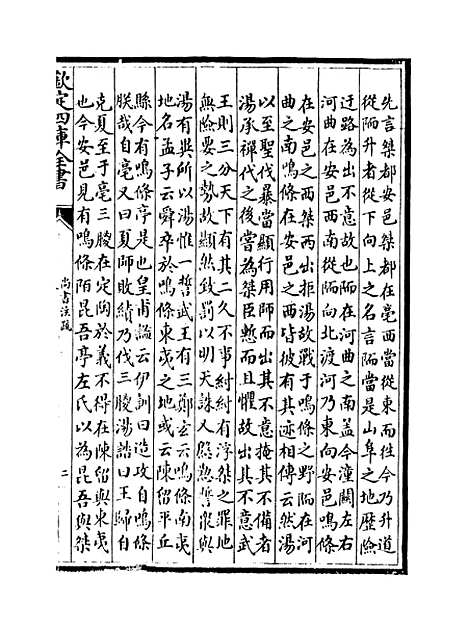 先言桀都安邑桀都在亳西當從東而往今乃升道
從陑升者從下向上之名言陑當是山阜之地歷險
迂路為出不意故也陑在河曲之南蓋今潼關左右
河曲在安邑西南從陑向北渡河乃東向安邑鳴條
在安邑之西桀西出拒湯故戰于鳴條之野陑在河
曲之南鳴條在安邑之西皆彼有其迹相傳云然湯
以至聖伐暴當顯行用師而出其不意掩其不備者
湯承禪代之後嘗為桀臣慙而且懼故出其不意武
王則三分天下有其二久不事紂紂有浮桀之罪地
無險要之勢故顯然致罰以明天誅又慇懃誓衆與
湯有異所以湯惟一誓武王有三鄭玄云鳴條南夷
地名孟子云舜卒於鳴條東夷之地或云陳留平丘
縣今有鳴條亭是也皇甫謐云伊訓曰造攻自鳴條
朕哉自亳又曰夏師敗績乃伐三朡湯誥曰王歸自
克夏至于亳三朡在定陶於義不得在陳留與東夷
也今安邑見有鳴條陌昆吾亭左氏以為昆吾與桀
欽定四庫全書
尚書注疏
二